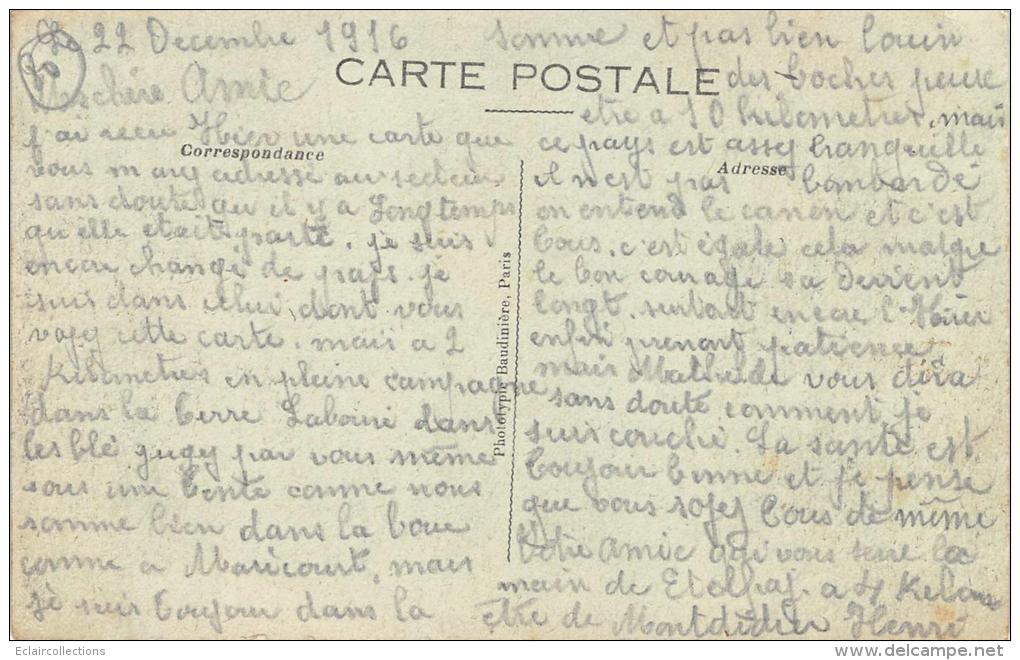 Le 22 Decembre 1916
CARTE POSTALE
chère Amie
j'ai recu Hier une carte que
Correspondance
vous m avy adressé au secteur
sans doute qu il y a Longtemps
qu'elle etait parté. je suis
encore changé de pays. je
suis dans celui dont vous
voyy cette carte. mais a 2
Kilometres en pleine campagne
dans la terre Labouré dans
les blé jugy par vous même
sous une tente comme nous
somme bien dans la boue
comme a Maricourt. mais
je suis toujour dans la
Phototypie Baudinière, Paris
somme et pas bien louin
des boches peuse
etre a 10 kilometres, mais
ce pays est assy tranquille
Adresse
il n'est pas bombardé
on entend le canon et c'est
tous. c'est égale cela malgre
le bon courage sa devient
longt. surtout encore l'Hiver
enfin prenont patience
mais Mathilde vous dira
sans doute comment je
suis couché. La santé est
toujour bonne et je pense
que vous soyez tous de même
Votre Amie qui vous serre la
main de a 4 Kelom
etre de Montdidier Henri
Eclaircollections